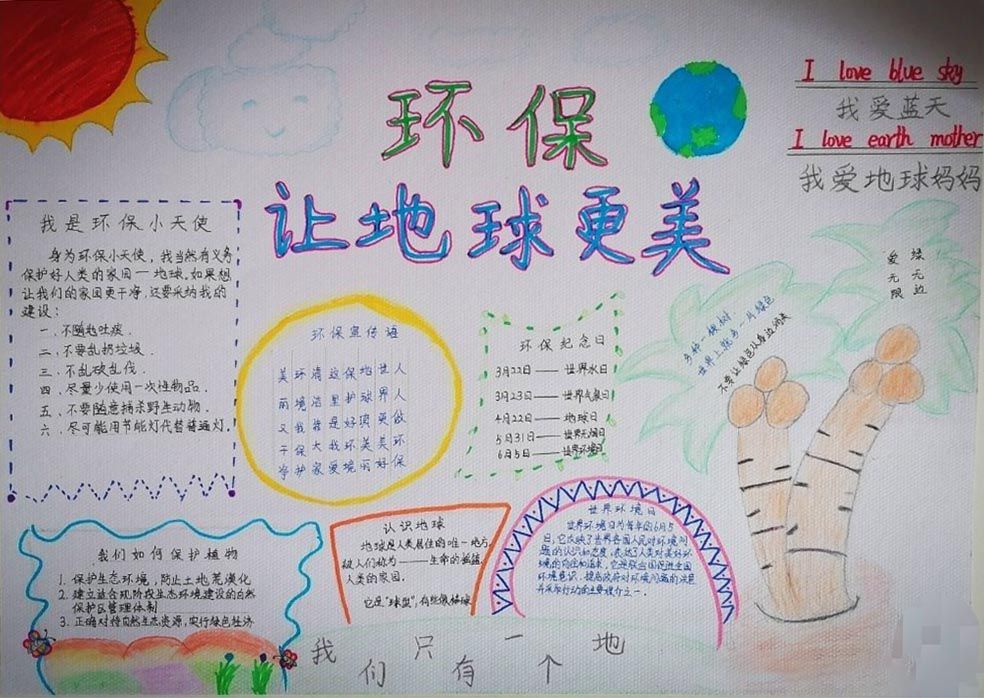 环保
让地球更美
I love blue sky
我爱蓝天
I love earth mother
我爱地球妈妈
我是环保小天使
身为环保小天使，我当然有义务
保护好人类的家园一地球，如果想
让我们的家园更干净，还要采纳我的
建设：
一、不随地吐痰．
二、不要乱扔垃圾．
三、不乱砍乱伐．
四、尽量少使用一次性物品．
五、不要随意捕杀野生动物．
六、尽可能用节能灯代替普通灯．
环保宣传语
美环清这保地世人
丽境洁里护球界人
又我皆是好更做
干保大我环美美环
净护家爱境丽好保
环保纪念日
3月22日——世界水日
3月23日——世界气象日
4月22日——地球日
5月31日——世界无烟日
6月5日——世界环境日
多种一棵树
世界上就多一片绿色
不要让绿色从身边消失
爱无限
绿无边
我们如何保护植物
1. 保护生态环境，防止土地荒漠化
2. 建立适合现阶段生态环境建设的自然
保护区管理体制
3. 正确对待自然生态资源，实行绿色经济
认识地球
地球是人类居住的唯一地方，
被人们称为——生命的摇篮，
人类的家园．
它是“球型”，有些像椭球
世界环境日
世界环境日为每年的6月5
日，它反映了世界各国人民对环境问
题的认识和态度，表达了人类对美好环
境的向往和追求，它是联合国促进全国
环境意识、提高政府对环境问题的注意
并采取行动的主要媒介之一．
我们只有一个地